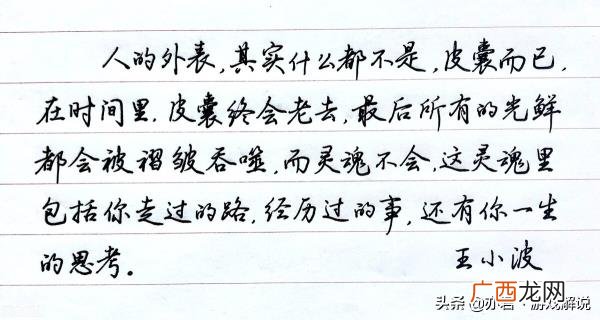 人的外表，其实什么都不是，皮囊而已，
在时间里，皮囊终会老去，最后所有的光鲜
都会被褶皱吞噬，而灵魂不会，这灵魂里
包括你走过的路，经历过的事，还有你一生
的思考。 王小波
广西龙网
头条 @亦君·游戏解说